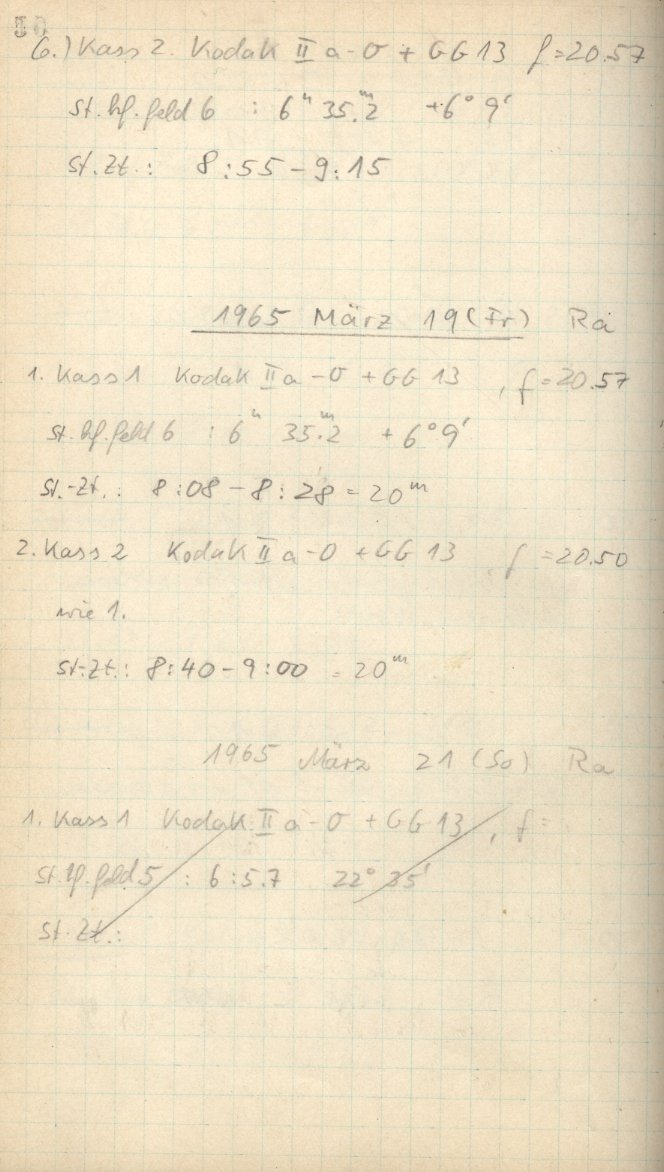 50
6.) Kass 2. Kodak II a-O + GG 13 f=20.57
St.hf.feld 6 : 6ʰ 35.ᵐ2 +6° 9'
St.Zt.: 8:55 – 9:15
1965 März 19 (Fr) Ra
1. Kass 1 Kodak II a-O + GG 13 , f=20.57
St.hf.feld 6 : 6ʰ 35.ᵐ2 +6° 9'
St.-Zt.: 8:08 – 8:28 = 20ᵐ
2. Kass 2 Kodak II a-O + GG 13 , f=20.50
wie 1.
St-Zt.: 8:40 – 9:00 = 20ᵐ
1965 März 21 (So) Ra
1. Kass 1 Kodak II a-O + GG 13 , f=
St.hf.feld 5 : 6:5.7 22° 35'
St.Zt.: